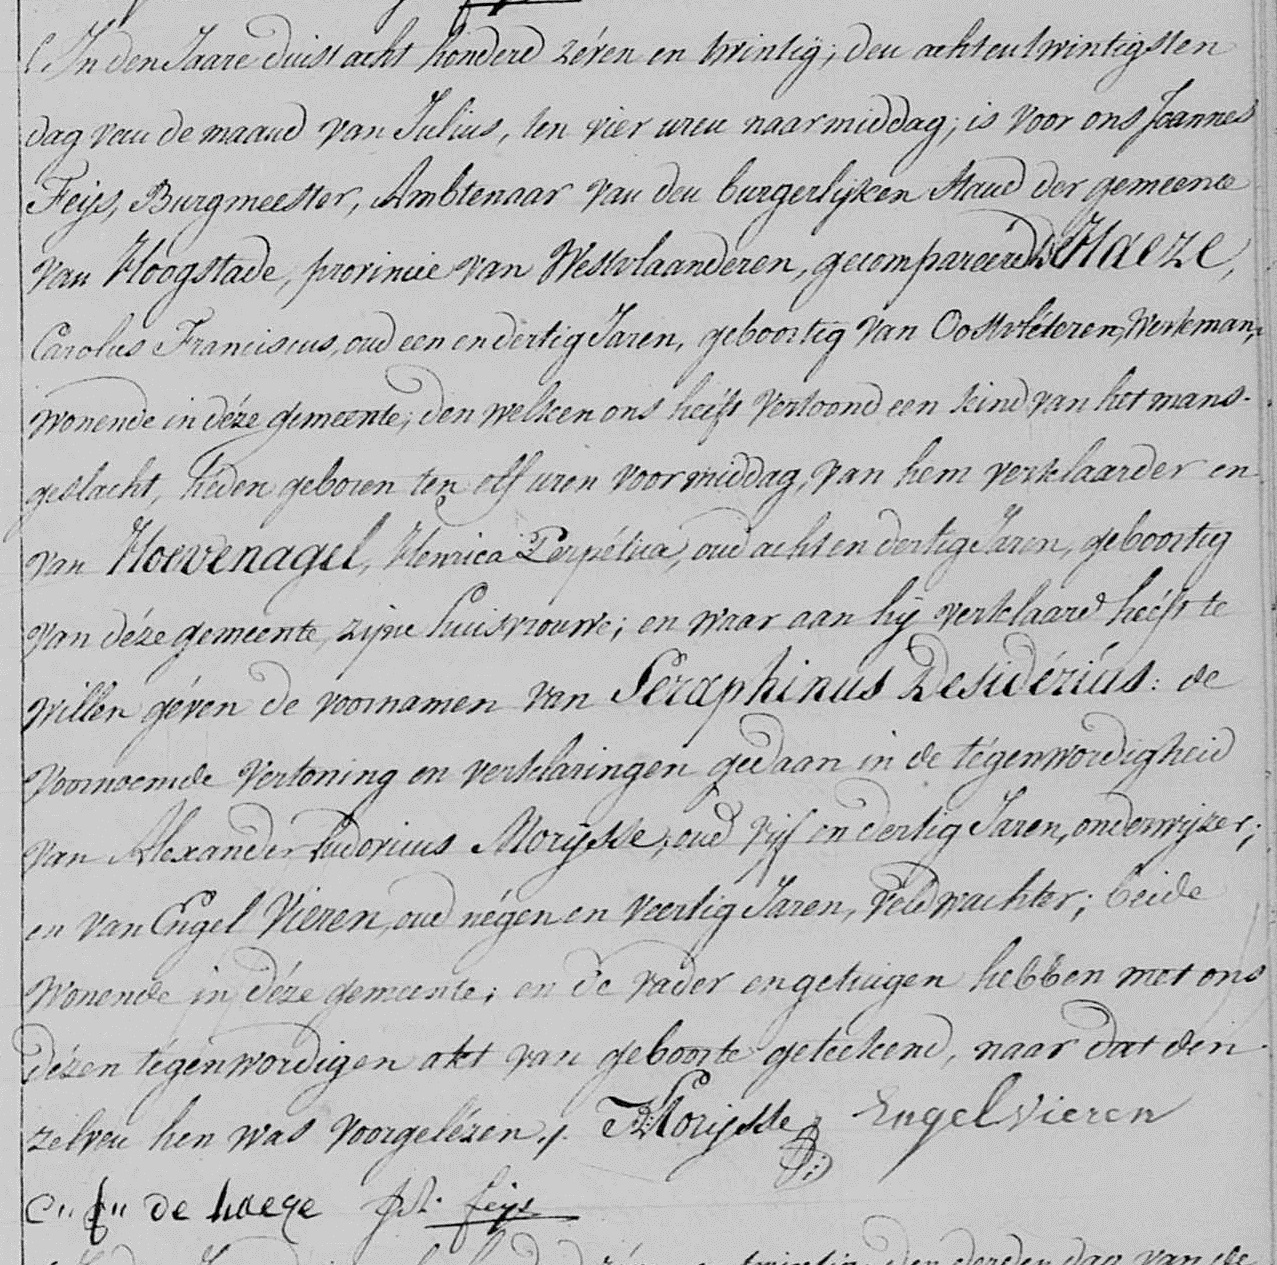 In den Jaare duist acht honderd zéven en twintig, den achtentwintigsten
dag van de maand van Julius, ten vier uren naarmiddag; is voor ons Joannes
Feijs, Burgmeester, Ambtenaar van den burgerlijken Staud der gemeente
van Hoogstade, provincie van Westvlaanderen, gecompareerd De Haeze,
Carolus Franciscus, oud een en dertig Jaren, geboortig van Oostvléteren, Werkman,
wonende in déze gemeente; den welken ons heéft vertoond een kind van het mans-
geslacht, héden geboren ten elf uren voormiddag, van hem verklaarder en
van Hoevenagel, Henrica Perpétua, oud acht en dertig Jaren, geboortig
van déze gemeente, zijne huisvrouwe; en waar aan hij verklaard heéft te
willen géven de voornamen van Seraphinus Desidériús: de
voornoemde vertoning en verklaringen gedaan in de tégenwordigheid
van Alexander Ludovicus Morijsse, oud vijf en dertig Jaren, onderwijzer;
en van Engel Vieren, oud négen en veertig Jaren, Véldwachter; beide
wonende in déze gemeente; en de vader en getuigen hebben met ons
dézen tégenwordigen akt van geboorte geteekend, naar dat den
zelven hen was voorgelézen ./. Morijsse Engel Vieren
C" f" de haeze feijs